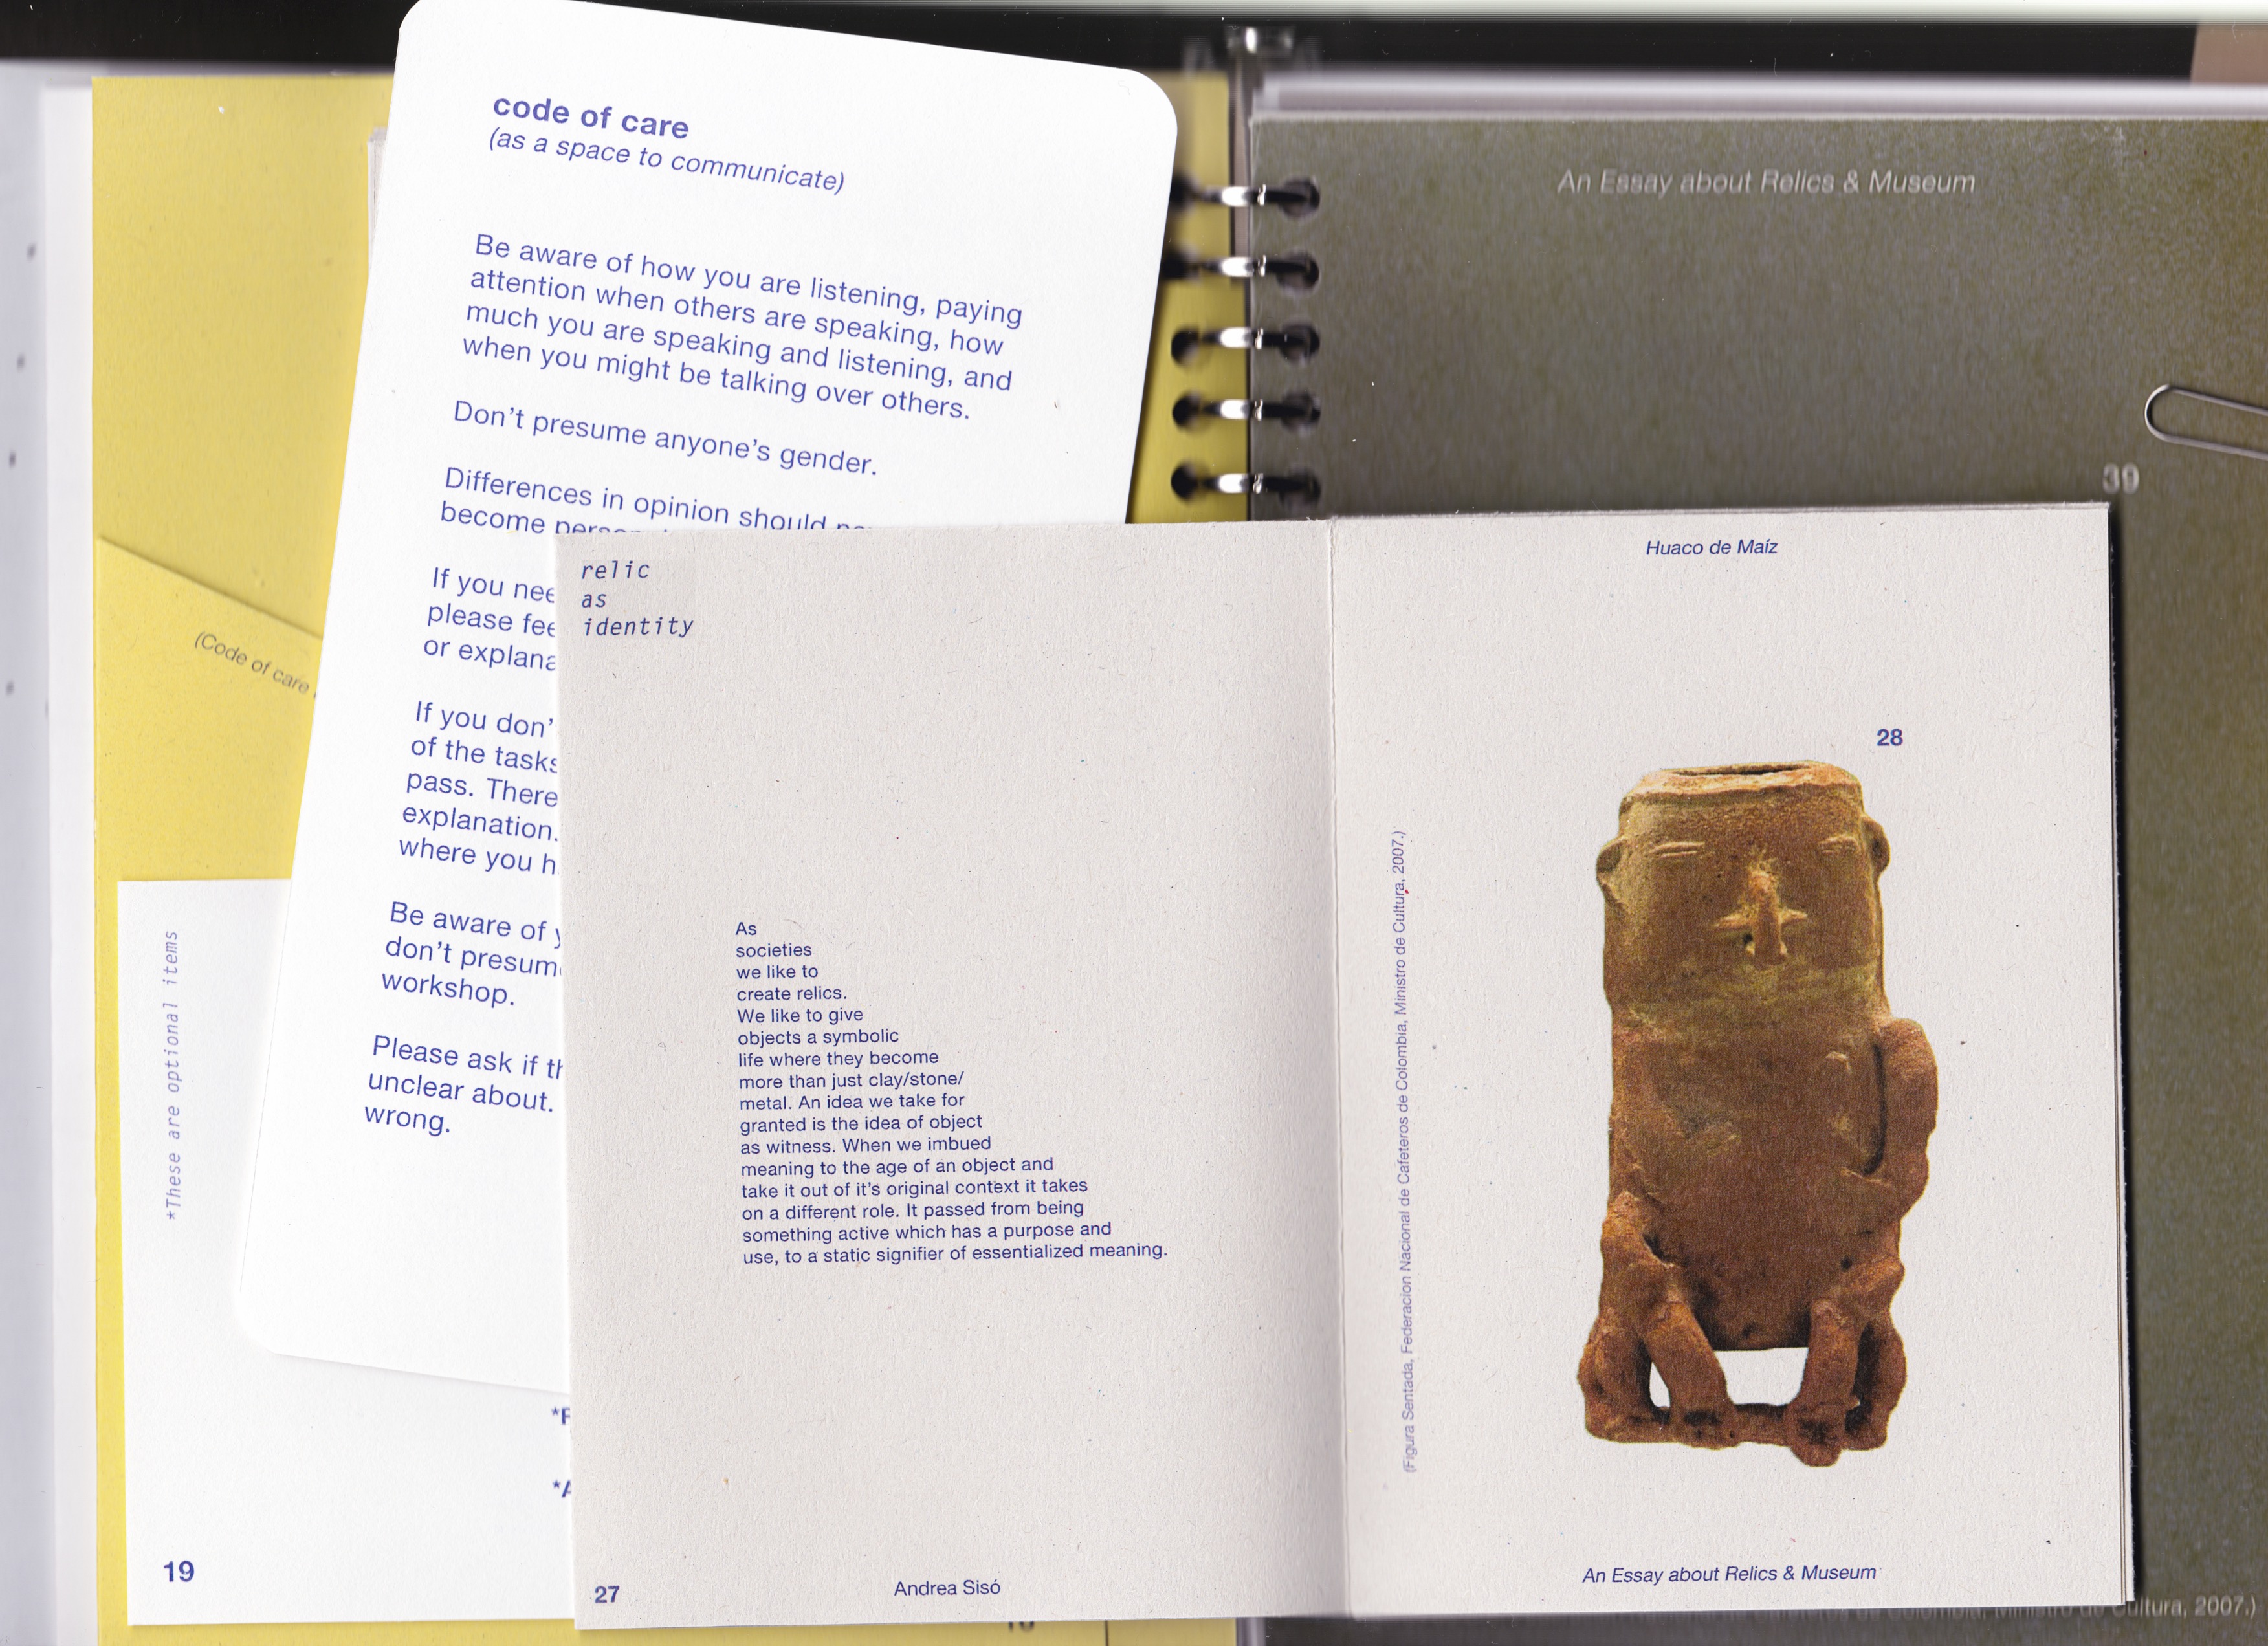 code of care
(as a space to communicate)
Be aware of how you are listening, paying
attention when others are speaking, how
much you are speaking and listening, and
when you might be talking over others.
Don't presume anyone's gender.
Differences in opinion should
become
If you
please
or
If you don'
of the tasks
pass. There
explanation.
where you
Be aware of
don't
workshop.
Please ask if
unclear about.
wrong.
(Code of care
*These are optional items
19
relic
as
identity
As
societies
we like to
create relics.
We like to give
objects a symbolic
life where they become
more than just clay/stone/
metal. An idea we take for
granted is the idea of object
as witness. When we imbued
meaning to the age of an object and
take it out of it's original context it takes
on a different role. It passed from being
something active which has a purpose and
use, to a static signifier of essentialized meaning.
27
Andrea Sisó
An Essay about Relics & Museum
39
Huaco de Maíz
28
(Figura Sentada, Federacion Nacional de Cafeteros de Colombia, Ministro de Cultura, 2007.)
An Essay about Relics & Museum
Ministro de Cultura, 2007.)